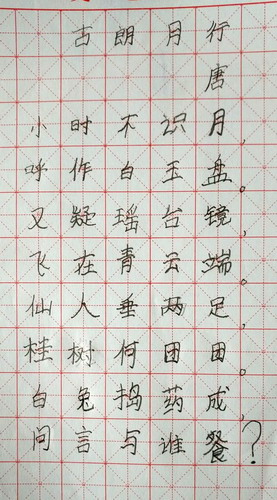 古朗月行
唐
小时不识月，
呼作白玉盘。
又疑瑶台镜，
飞在青云端。
仙人垂两足，
桂树何团团。
白兔捣药成，
问言与谁餐？